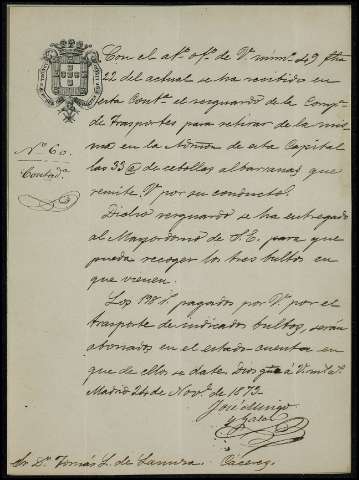 Con el at.º of.º de V. núm.º 49 fha
22 del actual se ha recibido en
esta Cont.ª el resguardo de la Comp.ª
de Trasportes para retirar de la mis
ma en la Admon de esta Capital
las 33@ de cebollas albarranas que
remite V. por su conducto.
Nº 60.
Contad.ª
Dicho resguardo se ha entregado
al Mayordomo de S. E. para que
pueda recoger los tres bultos en
que vienen.
Los pagados por V. por el
trasporte de indicados bultos, serán
abonados en el estado cuenta en
que de ellos se date. Dios gũe á V. m.s a.s
Madrid 24 de Nov.e de 1873.
José
y
Sr. D.n Tomás L. de Cáceres